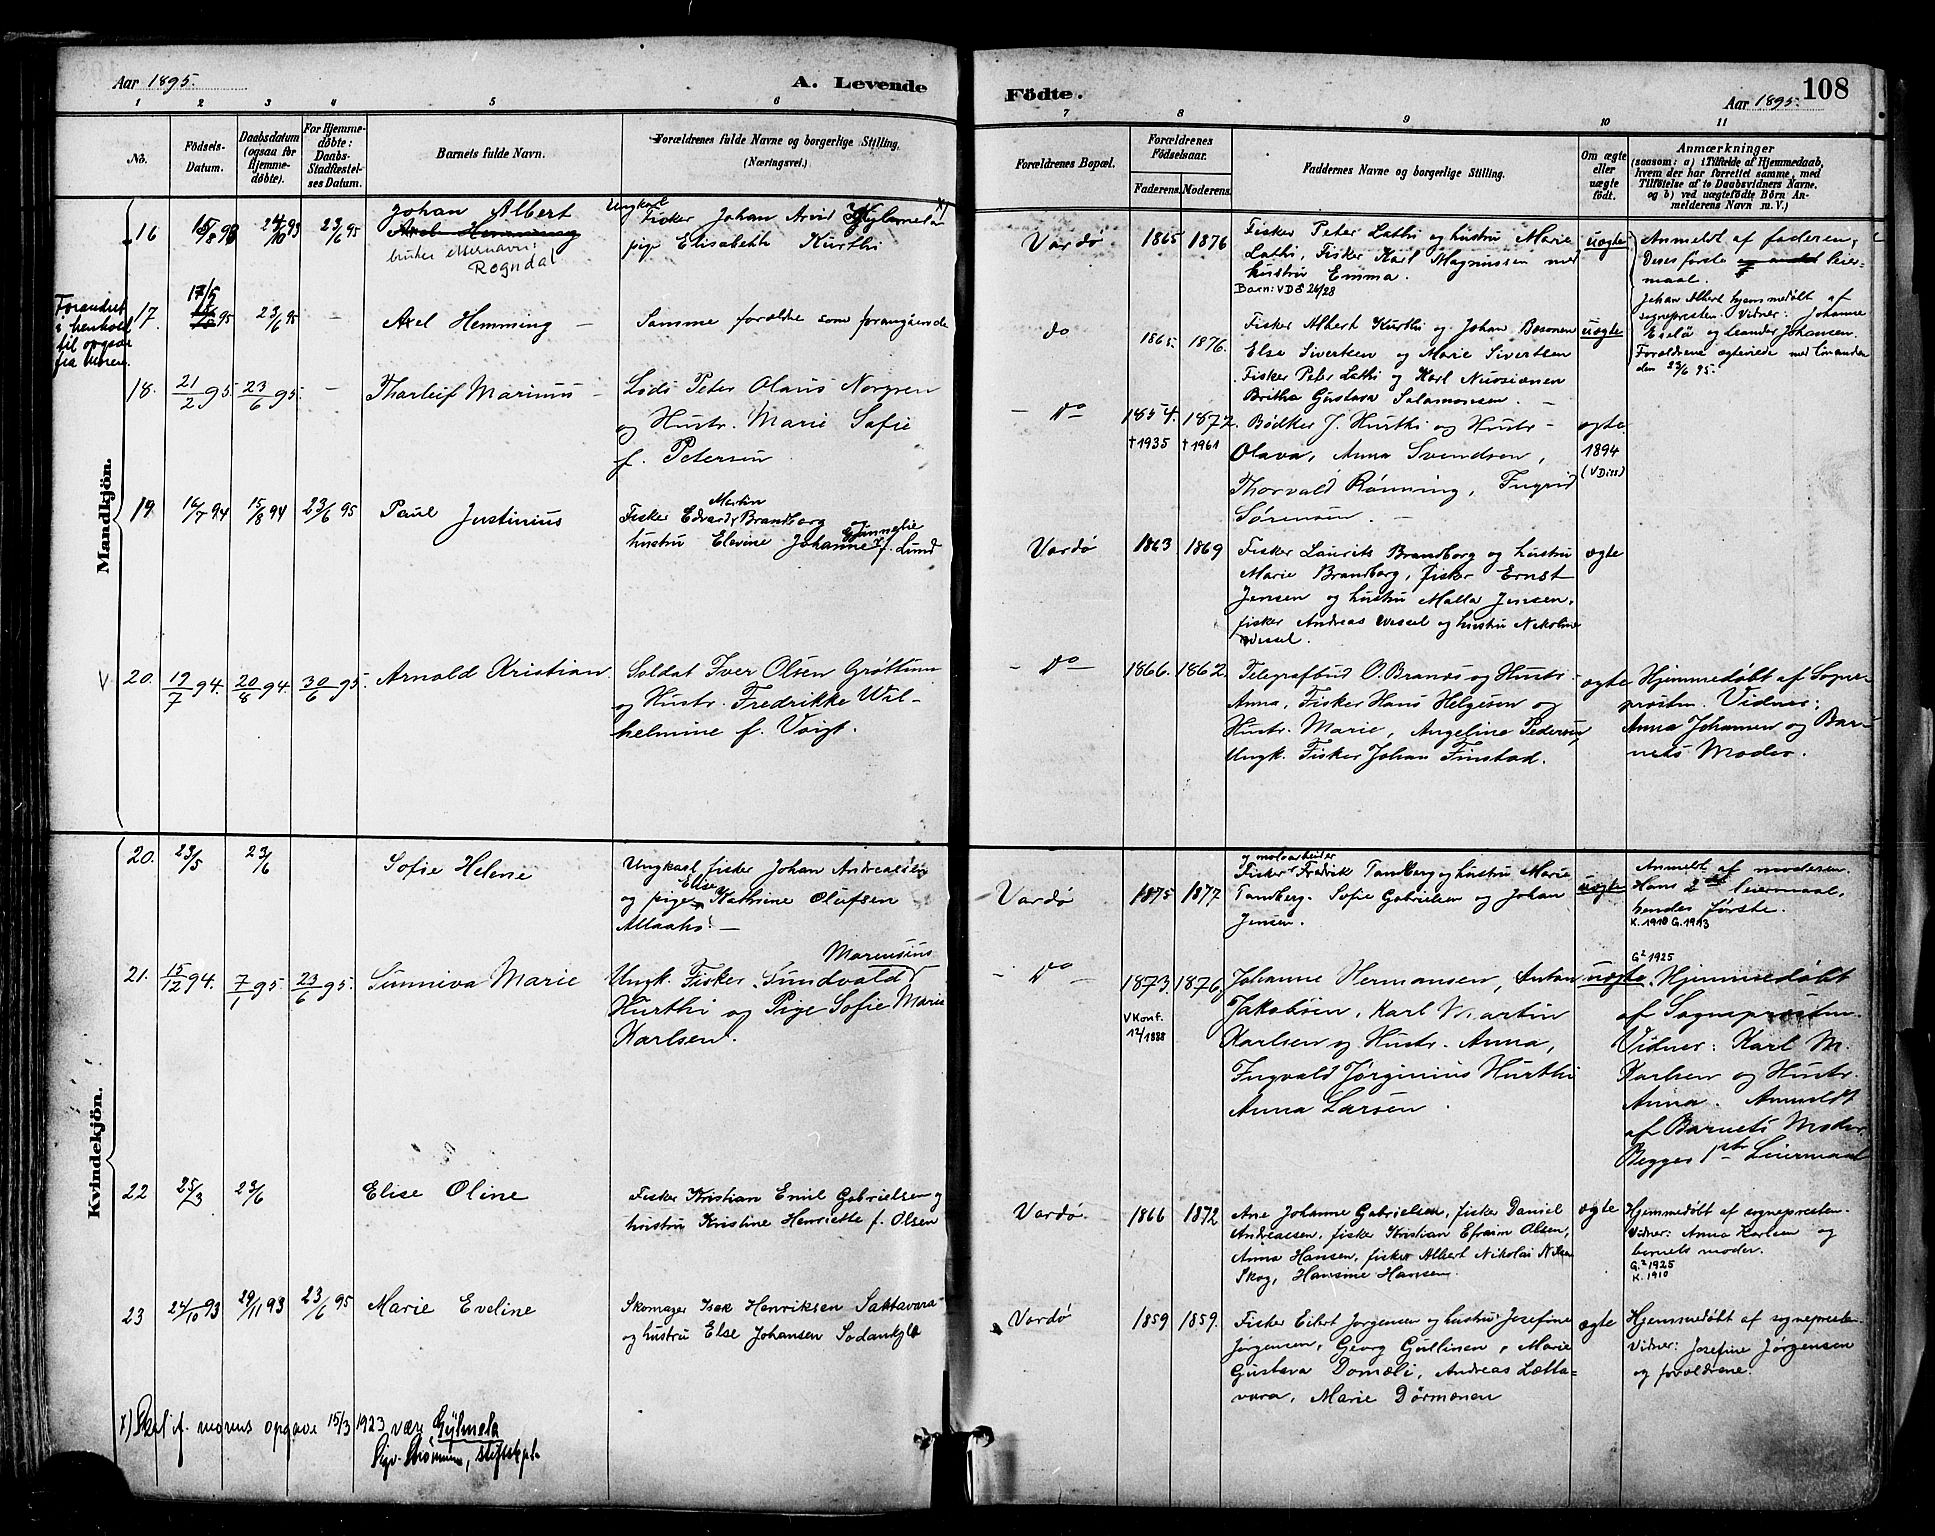 Aar 1895.
A. Levende
1 2 3 4 5 6
No.
Födsels-
Datum.
Daabsdatum
(ogsaa for
Hjemme-
döbte).
For Hjemme-
döbte:
Daabs-
Stadfæstel-
ses Datum.
Barnets fulde Navn.
Forældrenes fulde Navne og borgerlige Stilling.
(Næringsvei.)
Mandkjön.
16 15/8 93 24/10 93 23/6 95
Johan Albert
Axel Hemming
bruker etternavn:
Rogndal
Ungkarl
Fisker Johan Arvid Gylmela x)
pige Elisabeth Kurthi
Forandret
i henhold
til opgave
fra Moren.
17. 17/5 95 23/6 95 —
Axel Hemming —
Samme forældre som forangående
18. 21/2 95. 23/6 95. —
Tharleif Marius —
Lods Peter Olaus Norgren
og Hustr. Marie Sofie
f. Petersen
19 16/7 94 15/8 94 23/6 95
Paul Justinius
Martin
Fisker Edvard Brandborg og
hustru Elevine Johanne f. Lund
V 20. 19/7 94. 20/8 94. 30/6 95.
Arnold Kristian.
Soldat Iver Olsen Grøttum
og Hustr. Fredrikke Wil-
helmine f. Voigt.
Kvindekjön.
20. 23/5 23/6
Sofie Helene
Ungkarl fisker Johan Andreassen
Elise
og pige Kathrine Olufsen
21. 15/12 94. 7/1 95 23/6 95.
Sunniva Marie
Marensius
Ungk. Fisker Sundvald
Hurthi og Pige Sofie Marie
Karlsen.
22 25/3 23/6
Elise Oline
Fisker Kristian Emil Gabrielsen og
hustru Kristine Henriette f. Olsen
23 24/10 93 29/11 93 23/6 95
Marie Eveline
Skomager Isak Henriksen Sattavara
og hustru Else Johansen Sodankylæ
x) Skal if. morens opgave 15/3 1923 være Gylmela
Födte.
108
Aar 1895.
7 8 9 10 11
Forældrenes Bopæl.
Forældrenes
Födselsaar.
Faderens. Moderens.
Faddernes Navne og borgerlige Stilling.
Om ægte
eller
uægte
födt.
Anmærkninger
(saasom: a) i Tilfælde af Hjemmedaab,
hvem der har forrettet samme, med
Tilföielse af to Daabsvidners Navne.
og b) ved uægtefödte Börn An-
melderens Navn m. V.)
Vardø 1865 1876
Fisker Peter Lathi og hustru Marie
Lathi, Fisker Karl Magnussen med
hustru Emma.
Barn: VDS 26/28
uægte
Anmeldt af faderen,
Deres første leier-
maal.
do 1865. 1876.
Fisker Albert Kurthi og Johan Bosonen
Else Sivertsen og Marie Sivertsen
Fisker Peter Lathi og Karl
Britha Gustava Salamonsen. —
uægte
Johan Albert hjemmedøbt af
sognepresten. Vidner: Johanne
Esselä og Leander Johansen.
Forældrene ægteviede med hinanden
den 23/6 95.
— Do 1854. 1872.
†1935 †1961
Bødker J. Hurthi og Hustr —
Olava, Anna Svendsen,
Thorvald Rønning, Ingrid
Sørensen. —
ægte
1894
(VDiss)
Vardø 1863 1869
Fisker Laurits Brandborg og hustru
Marie Brandborg, fisker Ernst
Jensen og hustru Malla Jensen,
fisker Andreas Wessel og hustru Nikoline
Wessel.
ægte
— Do — 1866. 1862.
Telegrafbud O. Brands og Hustr —
Anna, Fisker Hans Helgesen og
Hustr. Marie, Angeline Pedersen,
Ungk. Fisker Johan Finstad.
ægte
Hjemmedøbt af Sogne-
presten. Vidner:
Anna Johansen og Bar-
nets Moder.
Vardø 1875 1877
og moloarbeider
Fisker Fredrik Tandberg og hustru Marie
Tandberg. Sofie Gabrielsen og Johan
Jensen.
uægte
Anmeldt af moderen.
Hans 2det leiermaal,
hendes første.
K. 1910 G. 1913
— Do — 1873. 1876,
VKonf.
12/1888
Johanne Hermansen, Anton
Jakobsen, Karl Martin
Karlsen og Hustr. Anna,
Ingvald Jørginius Hurthi
Anna Larsen.
uægte.
G² 1925
Hjemmedøbt
af Sognepresten.
Vidner: Karl M.
Karlsen og Hustr.
Anna. Anmeldt
af Barnets Moder.
Begges 1ste Leiermaal
Vardø. 1866 1872
Ane Johanne Gabrielsen, fisker Daniel
Andreassen, fisker Kristian Efraim Olsen,
Anna Hansen, fisker Albert Nikolai Nilsen
Skog, Hansine Hansen.
ægte
Hjemmedøbt af sognepresten.
Vidner: Anna Karlsen og
barnets moder.
G.² 1925
K. 1910
Vardø 1859 1859.
Fisker Eikrt Jørgensen og hustru Josefine
Jørgensen, Georg Gullinen, Marie
Gustava Domæli, Andreas Lætta-
vara, Marie Dörmænen
ægte
Hjemmedøbt af sognepresten.
Vidner: Josefine Jørgensen
og forældrene.